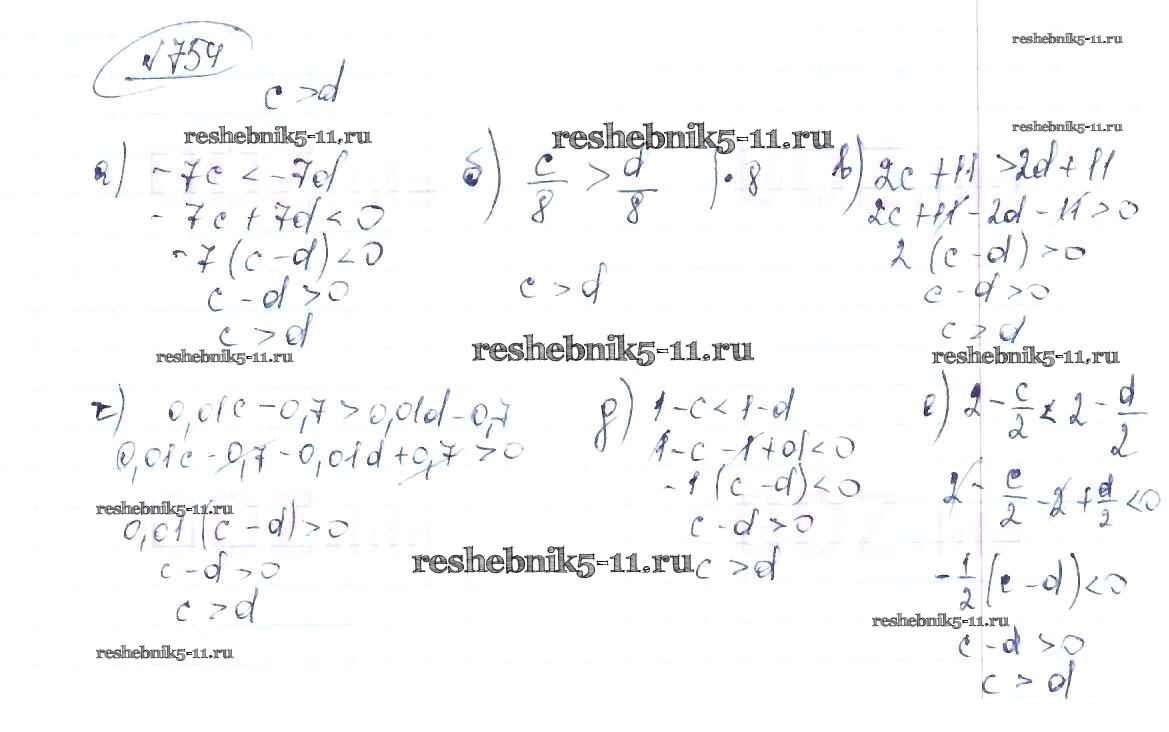 №754
reshebnik5-11.ru
c > d
reshebnik5-11.ru
reshebnik5-11.ru
reshebnik5-11.ru
а) -7c < -7d
-7c + 7d < 0
-7(c - d) < 0
c - d > 0
c > d
reshebnik5-11.ru
б) c/8 > d/8 | · 8
c > d
reshebnik5-11.ru
в) 2c + 11 > 2d + 11
2c + 11 - 2d - 11 > 0
2(c - d) > 0
c - d > 0
c > d
reshebnik5-11.ru
г) 0,01c - 0,7 > 0,01d - 0,7
0,01c - 0,7 - 0,01d + 0,7 > 0
reshebnik5-11.ru
0,01(c - d) > 0
c - d > 0
c > d
reshebnik5-11.ru
д) 1 - c < 1 - d
1 - c - 1 + d < 0
-1(c - d) < 0
c - d > 0
reshebnik5-11.ru
c > d
е) 2 - c/2 < 2 - d/2
2 - c/2 - 2 + d/2 < 0
-1/2(c - d) < 0
reshebnik5-11.ru
c - d > 0
c > d